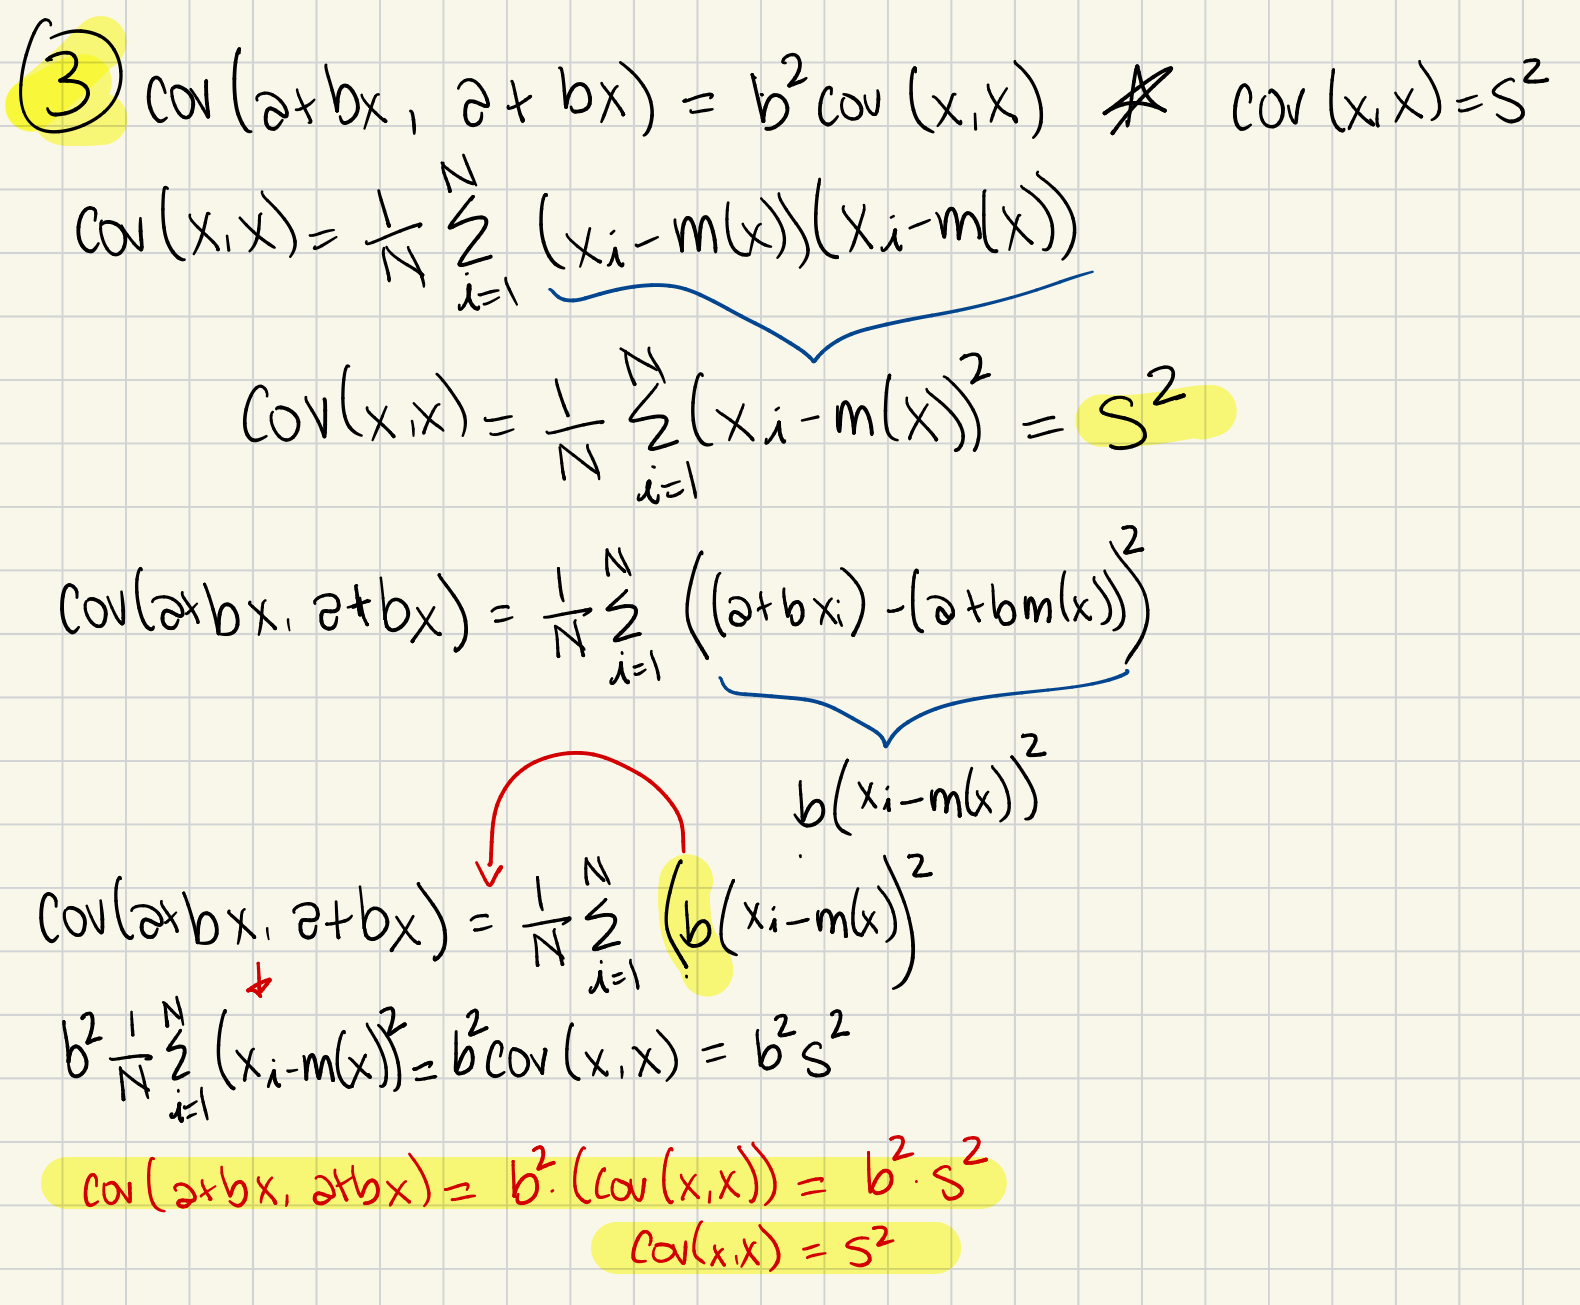 ③ cov(a+bx, a+bx) = b² cov(x,x) ★ cov(x,x)=s²
cov(x,x)= 1/N Σ_{i=1}^{N} (xi-m(x))(xi-m(x))
cov(x,x)= 1/N Σ_{i=1}^{N} (xi-m(x))² = s²
cov(a+bx, a+bx) = 1/N Σ_{i=1}^{N} ((a+bxi)-(a+bm(x)))²
b(xi-m(x))²
cov(a+bx, a+bx) = 1/N Σ_{i=1}^{N} (b(xi-m(x))²
b² 1/N Σ_{i=1}^{N} (xi-m(x))² = b²cov(x,x) = b²s²
cov(a+bx, a+bx) = b²·(cov(x,x)) = b²·s²
cov(x,x) = s²